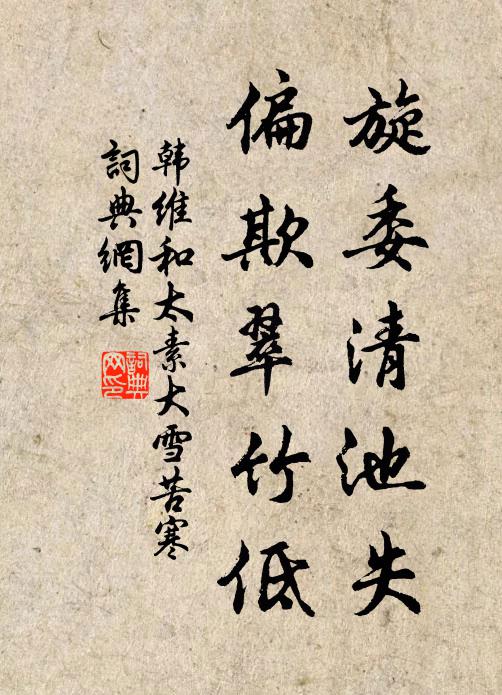 旋委清池失
偏欺翠竹低
韩维和太素大雪苦寒
詞典網集
詞典网印